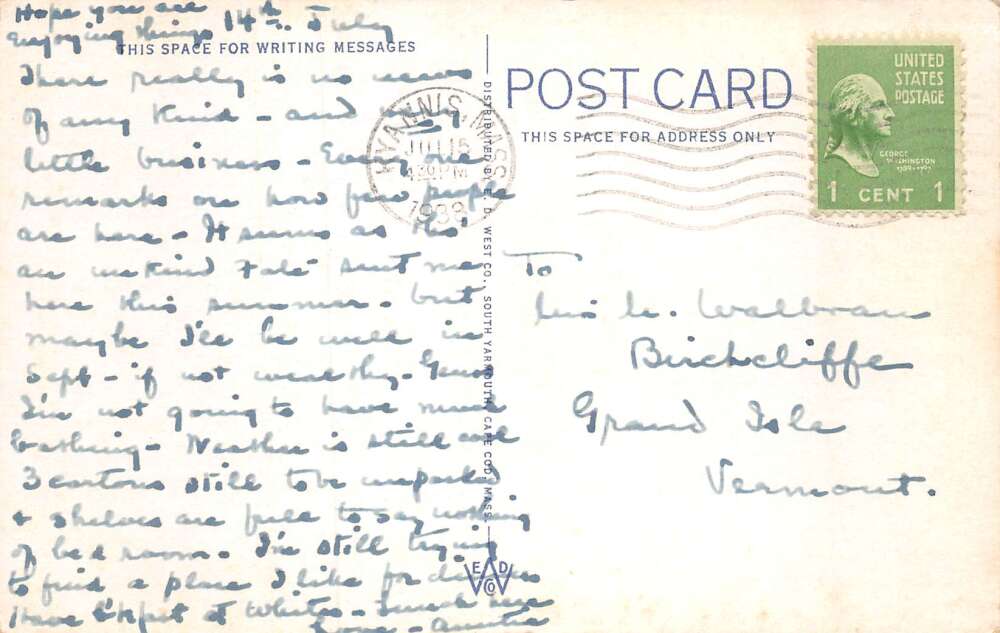 Hope you are
Enjoying things 14th July
THIS SPACE FOR WRITING MESSAGES
There really is no news
of any kind - and very
little business - Every one
remarks on how few people
are here - It seems as tho'
an unkind Fate sent me
here this summer - but
maybe I'll be well in
Sept - if not wealthy - Guess
I'm not going to have much
bathing - Weather is still cool
3 cartons still to be unpacked
& shelves are full to say nothing
of bed room - I'm still trying
to find a place I like for dinners
Have b'kfast at Whites - Lunch here
Love - Auntie
DISTRIBUTED BY E. D. WEST CO., SOUTH YARMOUTH, CAPE COD, MASS.
E D
W
CO
POST CARD
THIS SPACE FOR ADDRESS ONLY
HYANNIS, MASS
JUL 15
4 30 PM
1938
UNITED
STATES
POSTAGE
GEORGE
WASHINGTON
1 CENT 1
To
M. Walbran
Birchcliffe
Grand Isle
Vermont.